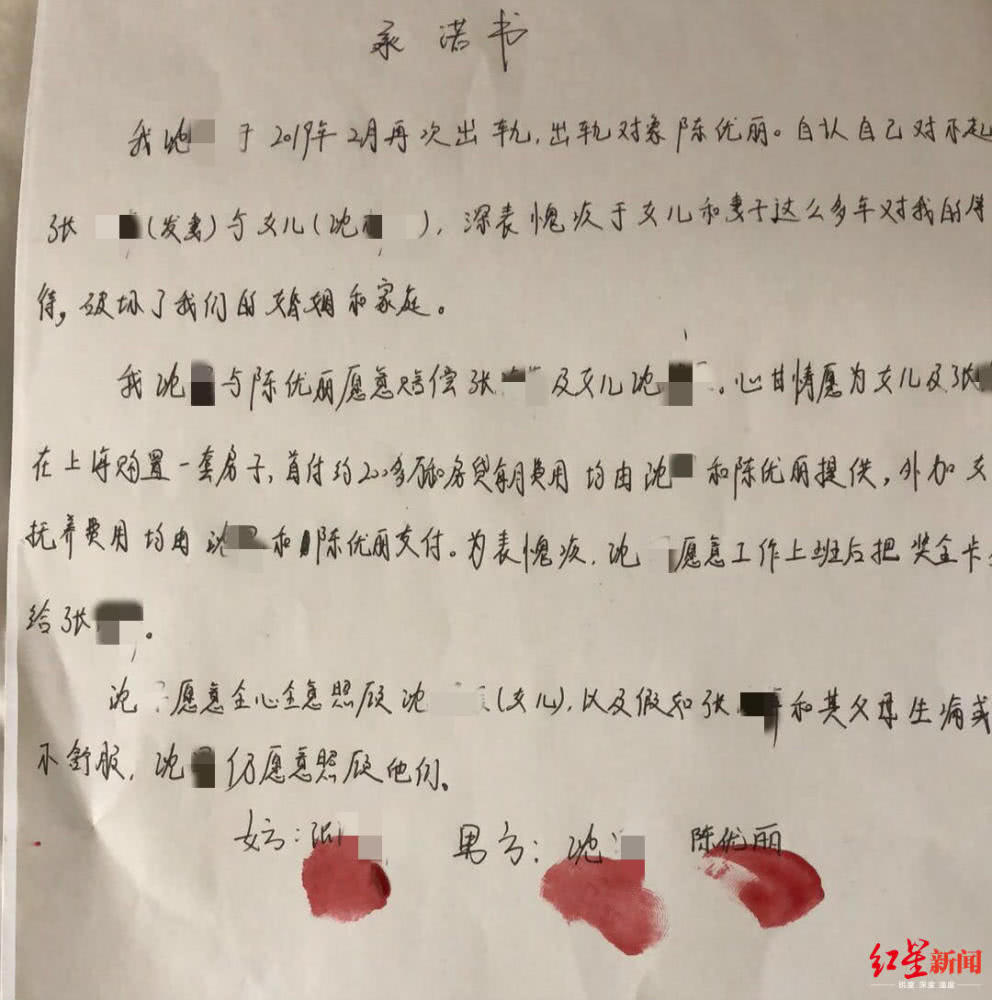 承诺书
我沈 于2019年2月再次出轨,出轨对象陈优丽。自认自己对不起
张 (发妻)与女儿(沈 ),深表愧疚于女儿和妻子这么多年对我的
待,破坏了我们的婚姻和家庭。
我沈 与陈优丽愿意赔偿张 及女儿沈 。心甘情愿为女儿及张
在上海购置一套房子,首付约200多万和房贷每月费用均由沈 和陈优丽提供,外加女
抚养费用均由沈 和陈优丽支付。为表愧疚,沈 愿意工作上班后把奖金卡
给张 。
沈 愿意全心全意照顾沈 (女儿),以及假如张 和其父母生病或
不舒服,沈 仍愿意照顾他们。
女方: 男方:沈 陈优丽
红星新闻
锐度 深度 温度